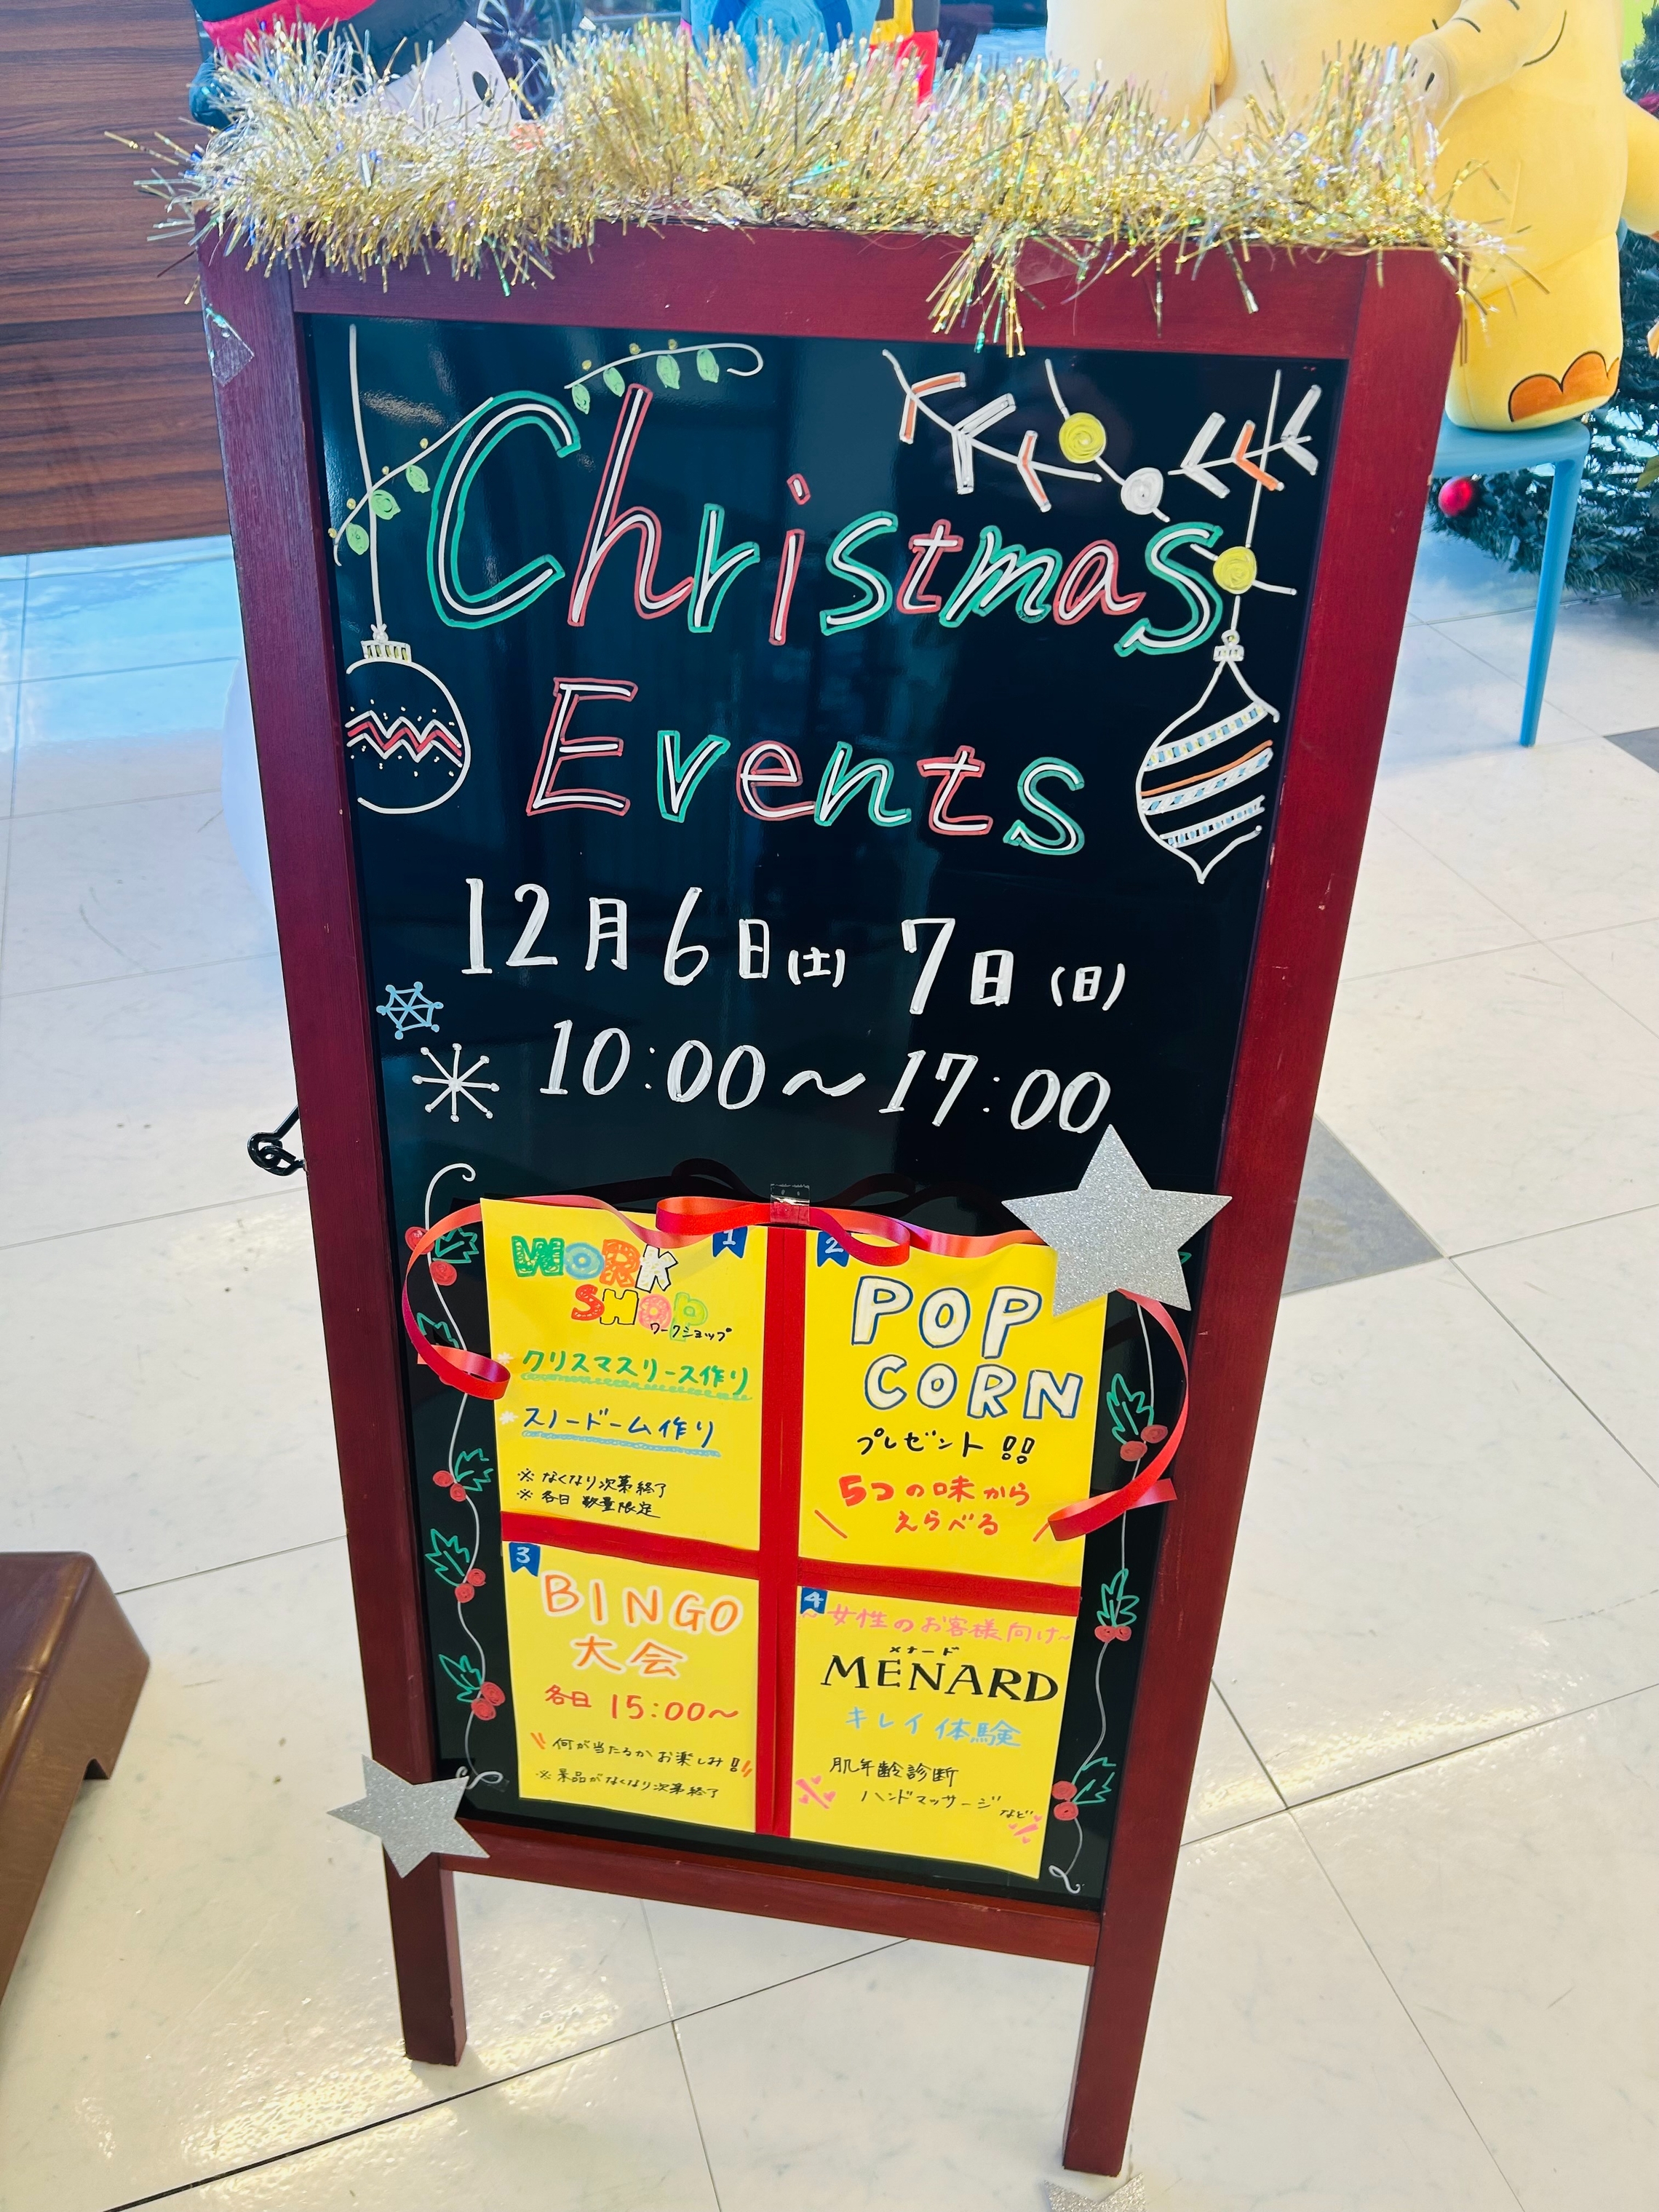 Christmas
Events
12月6日(土) 7日(日)
10:00〜17:00
1
WORK
SHOP
ワークショップ
クリスマスリース作り
スノードーム作り
※ なくなり次第終了
※ 各日 数量限定
2
POP
CORN
プレゼント!!
5つの味から
えらべる
3
BINGO
大会
各日 15:00〜
何が当たるか お楽しみ!!
※景品がなくなり次第終了
4
〜女性のお客様向け〜
メナード
MENARD
キレイ体験
肌年齢診断
ハンドマッサージ など